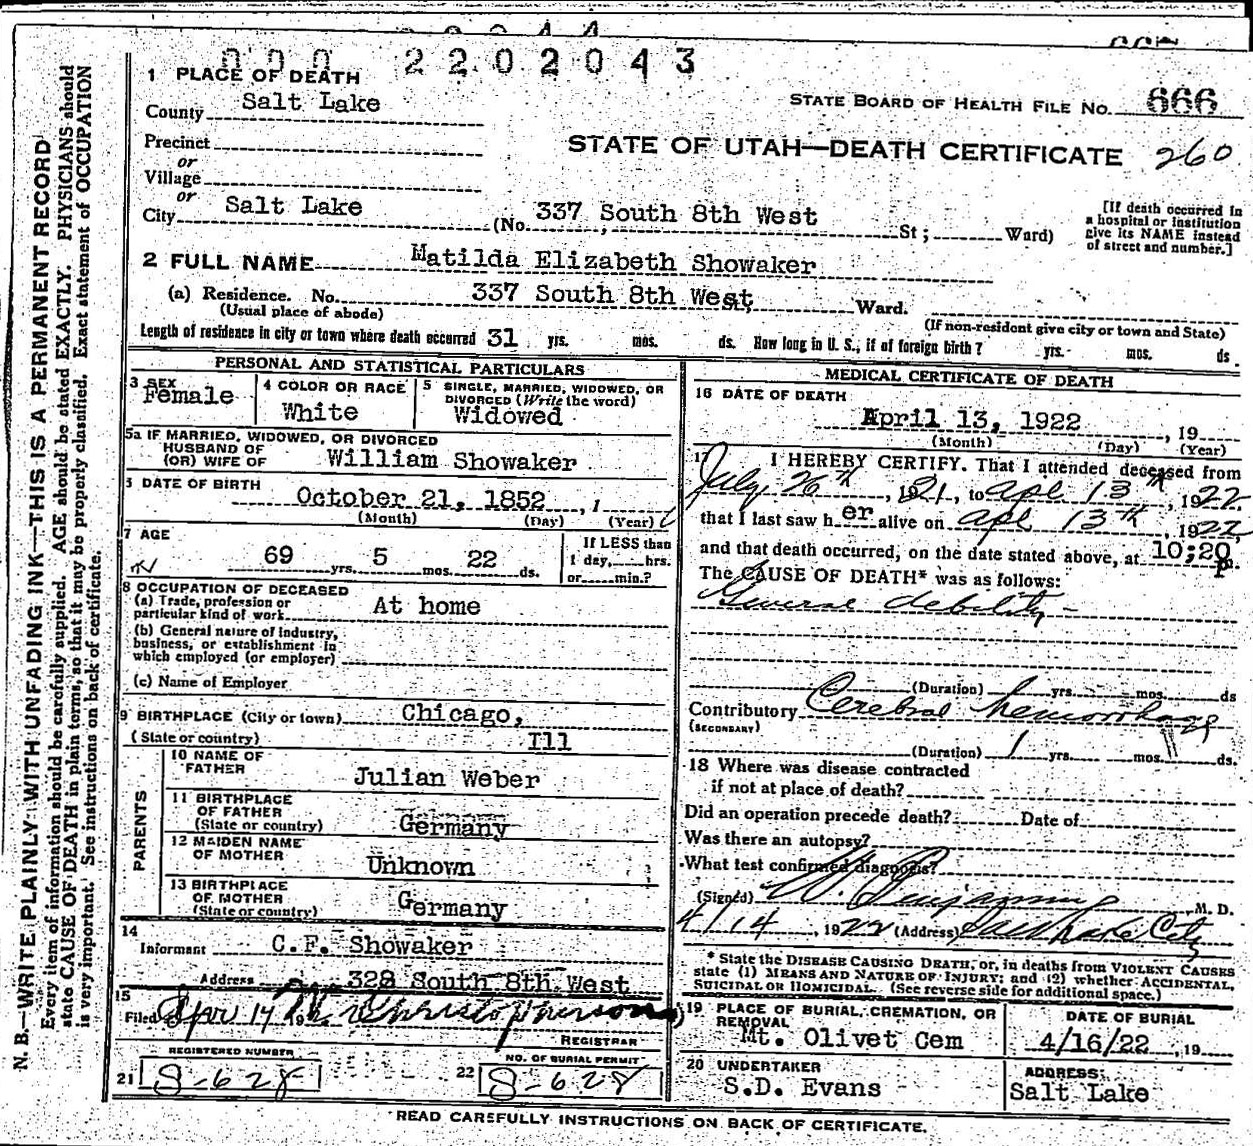 000 2202043
1 PLACE OF DEATH
County Salt Lake
STATE BOARD OF HEALTH FILE NO. 666
Precinct
or
Village
or
City Salt Lake (No. 337 South 8th West St; Ward)
STATE OF UTAH—DEATH CERTIFICATE 260
[If death occurred in
a hospital or institution
give its NAME instead
of street and number.]
2 FULL NAME Matilda Elizabeth Showaker
(a) Residence. No. 337 South 8th West, Ward.
(Usual place of abode) (If non-resident give city or town and State)
Length of residence in city or town where death occurred 31 yrs. mos. ds. How long in U. S., if of foreign birth? yrs. mos. ds
PERSONAL AND STATISTICAL PARTICULARS
3 SEX
Female
4 COLOR OR RACE
White
5 SINGLE, MARRIED, WIDOWED, OR
DIVORCED (Write the word)
Widowed
5a IF MARRIED, WIDOWED, OR DIVORCED
HUSBAND OF
(OR) WIFE OF William Showaker
DATE OF BIRTH
October 21, 1852, 1
(Month) (Day) (Year)
7 AGE
69 yrs. 5 mos. 22 ds.
If LESS than
1 day, hrs.
or min.?
8 OCCUPATION OF DECEASED
(a) Trade, profession or
particular kind of work At home
(b) General nature of industry,
business, or establishment in
which employed (or employer)
(c) Name of Employer
9 BIRTHPLACE (City or town) Chicago,
(State or country) Ill
PARENTS
10 NAME OF
FATHER
Julian Weber
11 BIRTHPLACE
OF FATHER
(State or country) Germany
12 MAIDEN NAME
OF MOTHER
Unknown
13 BIRTHPLACE
OF MOTHER
(State or country) Germany
14
Informant C.F. Showaker
Address 328 South 8th West
15
Filed Apr 14 19 Christopherson
REGISTRAR
REGISTERED NUMBER
21 S-628
NO. OF BURIAL PERMIT
22 S-628
MEDICAL CERTIFICATE OF DEATH
16 DATE OF DEATH
April 13, 1922, 19
(Month) (Day) (Year)
17 I HEREBY CERTIFY. That I attended deceased from
July 26th, 1921, to Apl 13th, 1922.
that I last saw her alive on Apl 13th, 1922,
and that death occurred, on the date stated above, at 10:20 P m.
The CAUSE OF DEATH* was as follows:
General debility
(Duration) yrs. mos. ds
Contributory Cerebral hemorrhage
(SECONDARY)
(Duration) 1 yrs. mos. ds.
18 Where was disease contracted
if not at place of death?
Did an operation precede death? Date of
Was there an autopsy?
What test confirmed diagnosis?
(Signed) Benjamin M. D.
4/14, 1922 (Address) Salt Lake City
* State the DISEASE CAUSING DEATH, or, in deaths from VIOLENT CAUSES
state (1) MEANS AND NATURE OF INJURY; and (2) whether ACCIDENTAL,
SUICIDAL OR HOMICIDAL. (See reverse side for additional space.)
19 PLACE OF BURIAL, CREMATION, OR
REMOVAL
Mt. Olivet Cem
DATE OF BURIAL
4/16/22, 19
20 UNDERTAKER
S.D. Evans
ADDRESS
Salt Lake
READ CAREFULLY INSTRUCTIONS ON BACK OF CERTIFICATE.
N. B.—WRITE PLAINLY WITH UNFADING INK—THIS IS A PERMANENT RECORD
Every item of information should be carefully supplied. AGE should be stated EXACTLY. PHYSICIANS should
state CAUSE OF DEATH in plain terms, so that it may be properly classified. Exact statement of OCCUPATION
is very important. See instructions on back of certificate.